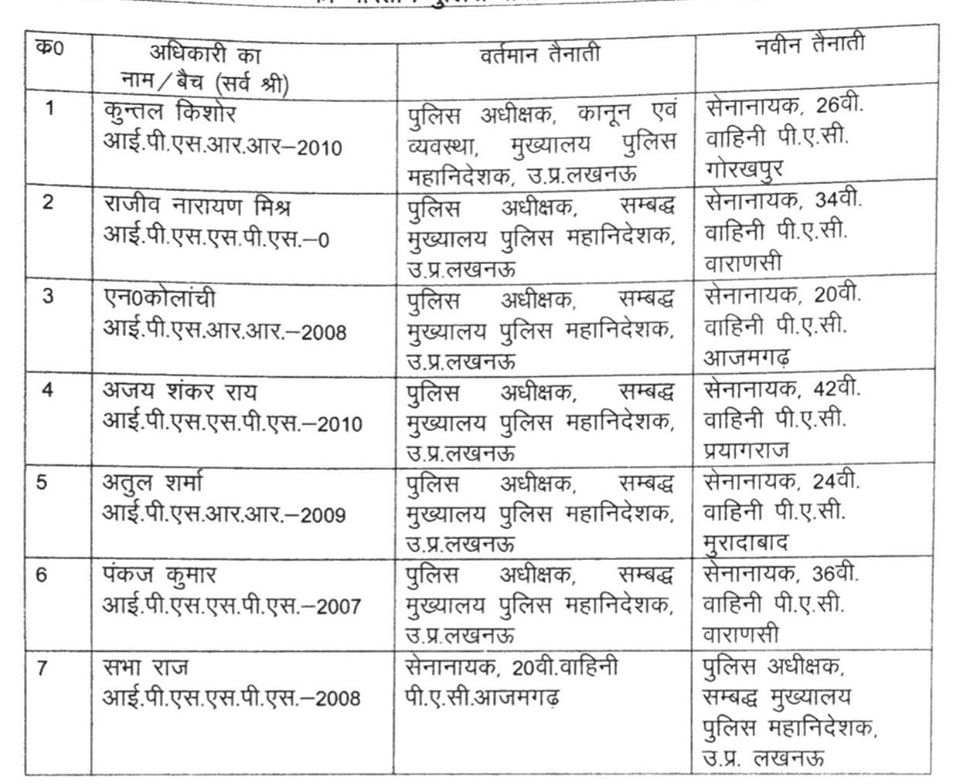 क0
अधिकारी का
नाम/बैच (सर्व श्री)
वर्तमान तैनाती
नवीन तैनाती
1
कुन्तल किशोर
आई.पी.एस.आर.आर–2010
पुलिस अधीक्षक, कानून एवं
व्यवस्था, मुख्यालय पुलिस
महानिदेशक, उ.प्र.लखनऊ
सेनानायक, 26वी.
वाहिनी पी.ए.सी.
गोरखपुर
2
राजीव नारायण मिश्र
आई.पी.एस.एस.पी.एस.–0
पुलिस अधीक्षक, सम्बद्ध
मुख्यालय पुलिस महानिदेशक,
उ.प्र.लखनऊ
सेनानायक, 34वी.
वाहिनी पी.ए.सी.
वाराणसी
3
एन0कोलांची
आई.पी.एस.आर.आर.–2008
पुलिस अधीक्षक, सम्बद्ध
मुख्यालय पुलिस महानिदेशक,
उ.प्र.लखनऊ
सेनानायक, 20वी.
वाहिनी पी.ए.सी.
आजमगढ़
4
अजय शंकर राय
आई.पी.एस.एस.पी.एस.–2010
पुलिस अधीक्षक, सम्बद्ध
मुख्यालय पुलिस महानिदेशक,
उ.प्र.लखनऊ
सेनानायक, 42वी.
वाहिनी पी.ए.सी.
प्रयागराज
5
अतुल शर्मा
आई.पी.एस.आर.आर.–2009
पुलिस अधीक्षक, सम्बद्ध
मुख्यालय पुलिस महानिदेशक,
उ.प्र.लखनऊ
सेनानायक, 24वी.
वाहिनी पी.ए.सी.
मुरादाबाद
6
पंकज कुमार
आई.पी.एस.एस.पी.एस.–2007
पुलिस अधीक्षक, सम्बद्ध
मुख्यालय पुलिस महानिदेशक,
उ.प्र.लखनऊ
सेनानायक, 36वी.
वाहिनी पी.ए.सी.
वाराणसी
7
सभा राज
आई.पी.एस.एस.पी.एस.–2008
सेनानायक, 20वी.वाहिनी
पी.ए.सी.आजमगढ़
पुलिस अधीक्षक,
सम्बद्ध मुख्यालय
पुलिस महानिदेशक,
उ.प्र. लखनऊ